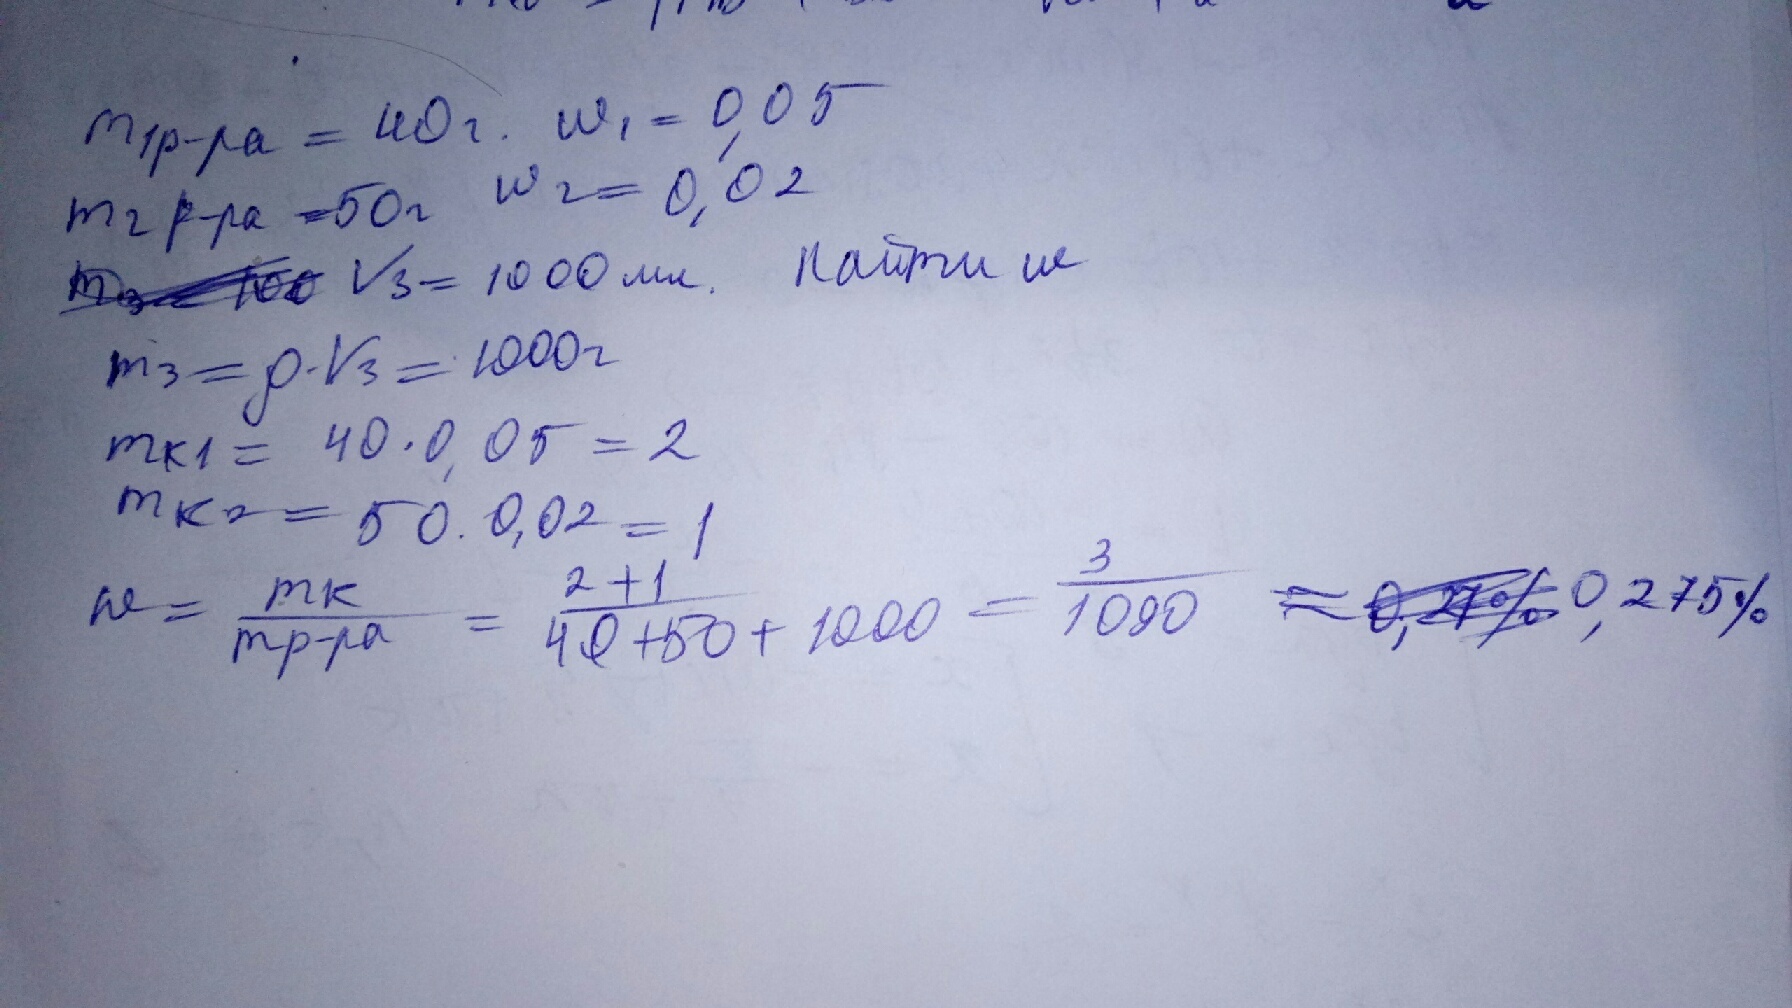 m1р-ра = 40г. w1 = 0,05
m2 р-ра = 50г w2 = 0,02
V3 = 1000 мл. Найти w
m3 = ρ·V3 = 1000г
mк1 = 40·0,05 = 2
mк2 = 50·0,02 = 1
w = mк/mр-ра = 2+1/40+50+1000 = 3/1090 ≈ 0,275%